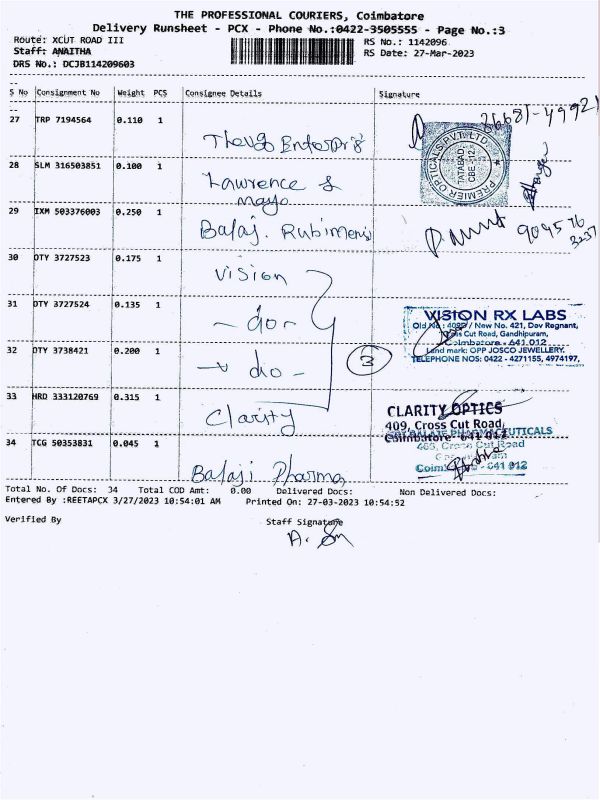 THE PROFESSIONAL COURIERS, Coimbatore
Delivery Runsheet - PCX - Phone No.:0422-3505555 - Page No.:3
Route: XCUT ROAD III
RS No.: 1142096
Staff: ANAITHA
RS Date: 27-Mar-2023
DRS No.: DCJB114209603
S No Consignment No Weight PCS Consignee Details Signature
27 TRP 7194564 0.110 1
28 SLM 316503851 0.100 1
Lawrence &
mayo
PREMIER OPTICALS PVT. LTD.
TATABAD
CBE -12.
29 IXM 503376003 0.250 1
Balaj. Rubimens
30 DTY 3727523 0.175 1
vision
31 DTY 3727524 0.135 1
- do -
VISION RX LABS
Old No : 409D / New No. 421, Dev Regnant,
Cross Cut Road, Gandhipuram,
Coimbatore - 641 012
Land mark: OPP JOSCO JEWELLERY.
TELEPHONE NOS: 0422 - 4271155, 4974197,
32 DTY 3738421 0.200 1
- do -
3
33 HRD 333120769 0.315 1
Clarity
CLARITY OPTICS
409, Cross Cut Road,
Coimbatore - 641 012
34 TCG 50353831 0.045 1
Balaji Pharma
PHARMACEUTICALS
465, Cross Cut Road
641 012
Total No. Of Docs: 34 Total COD Amt: 0.00 Delivered Docs: Non Delivered Docs:
Entered By :REETAPCX 3/27/2023 10:54:01 AM Printed On: 27-03-2023 10:54:52
Verified By Staff Signature